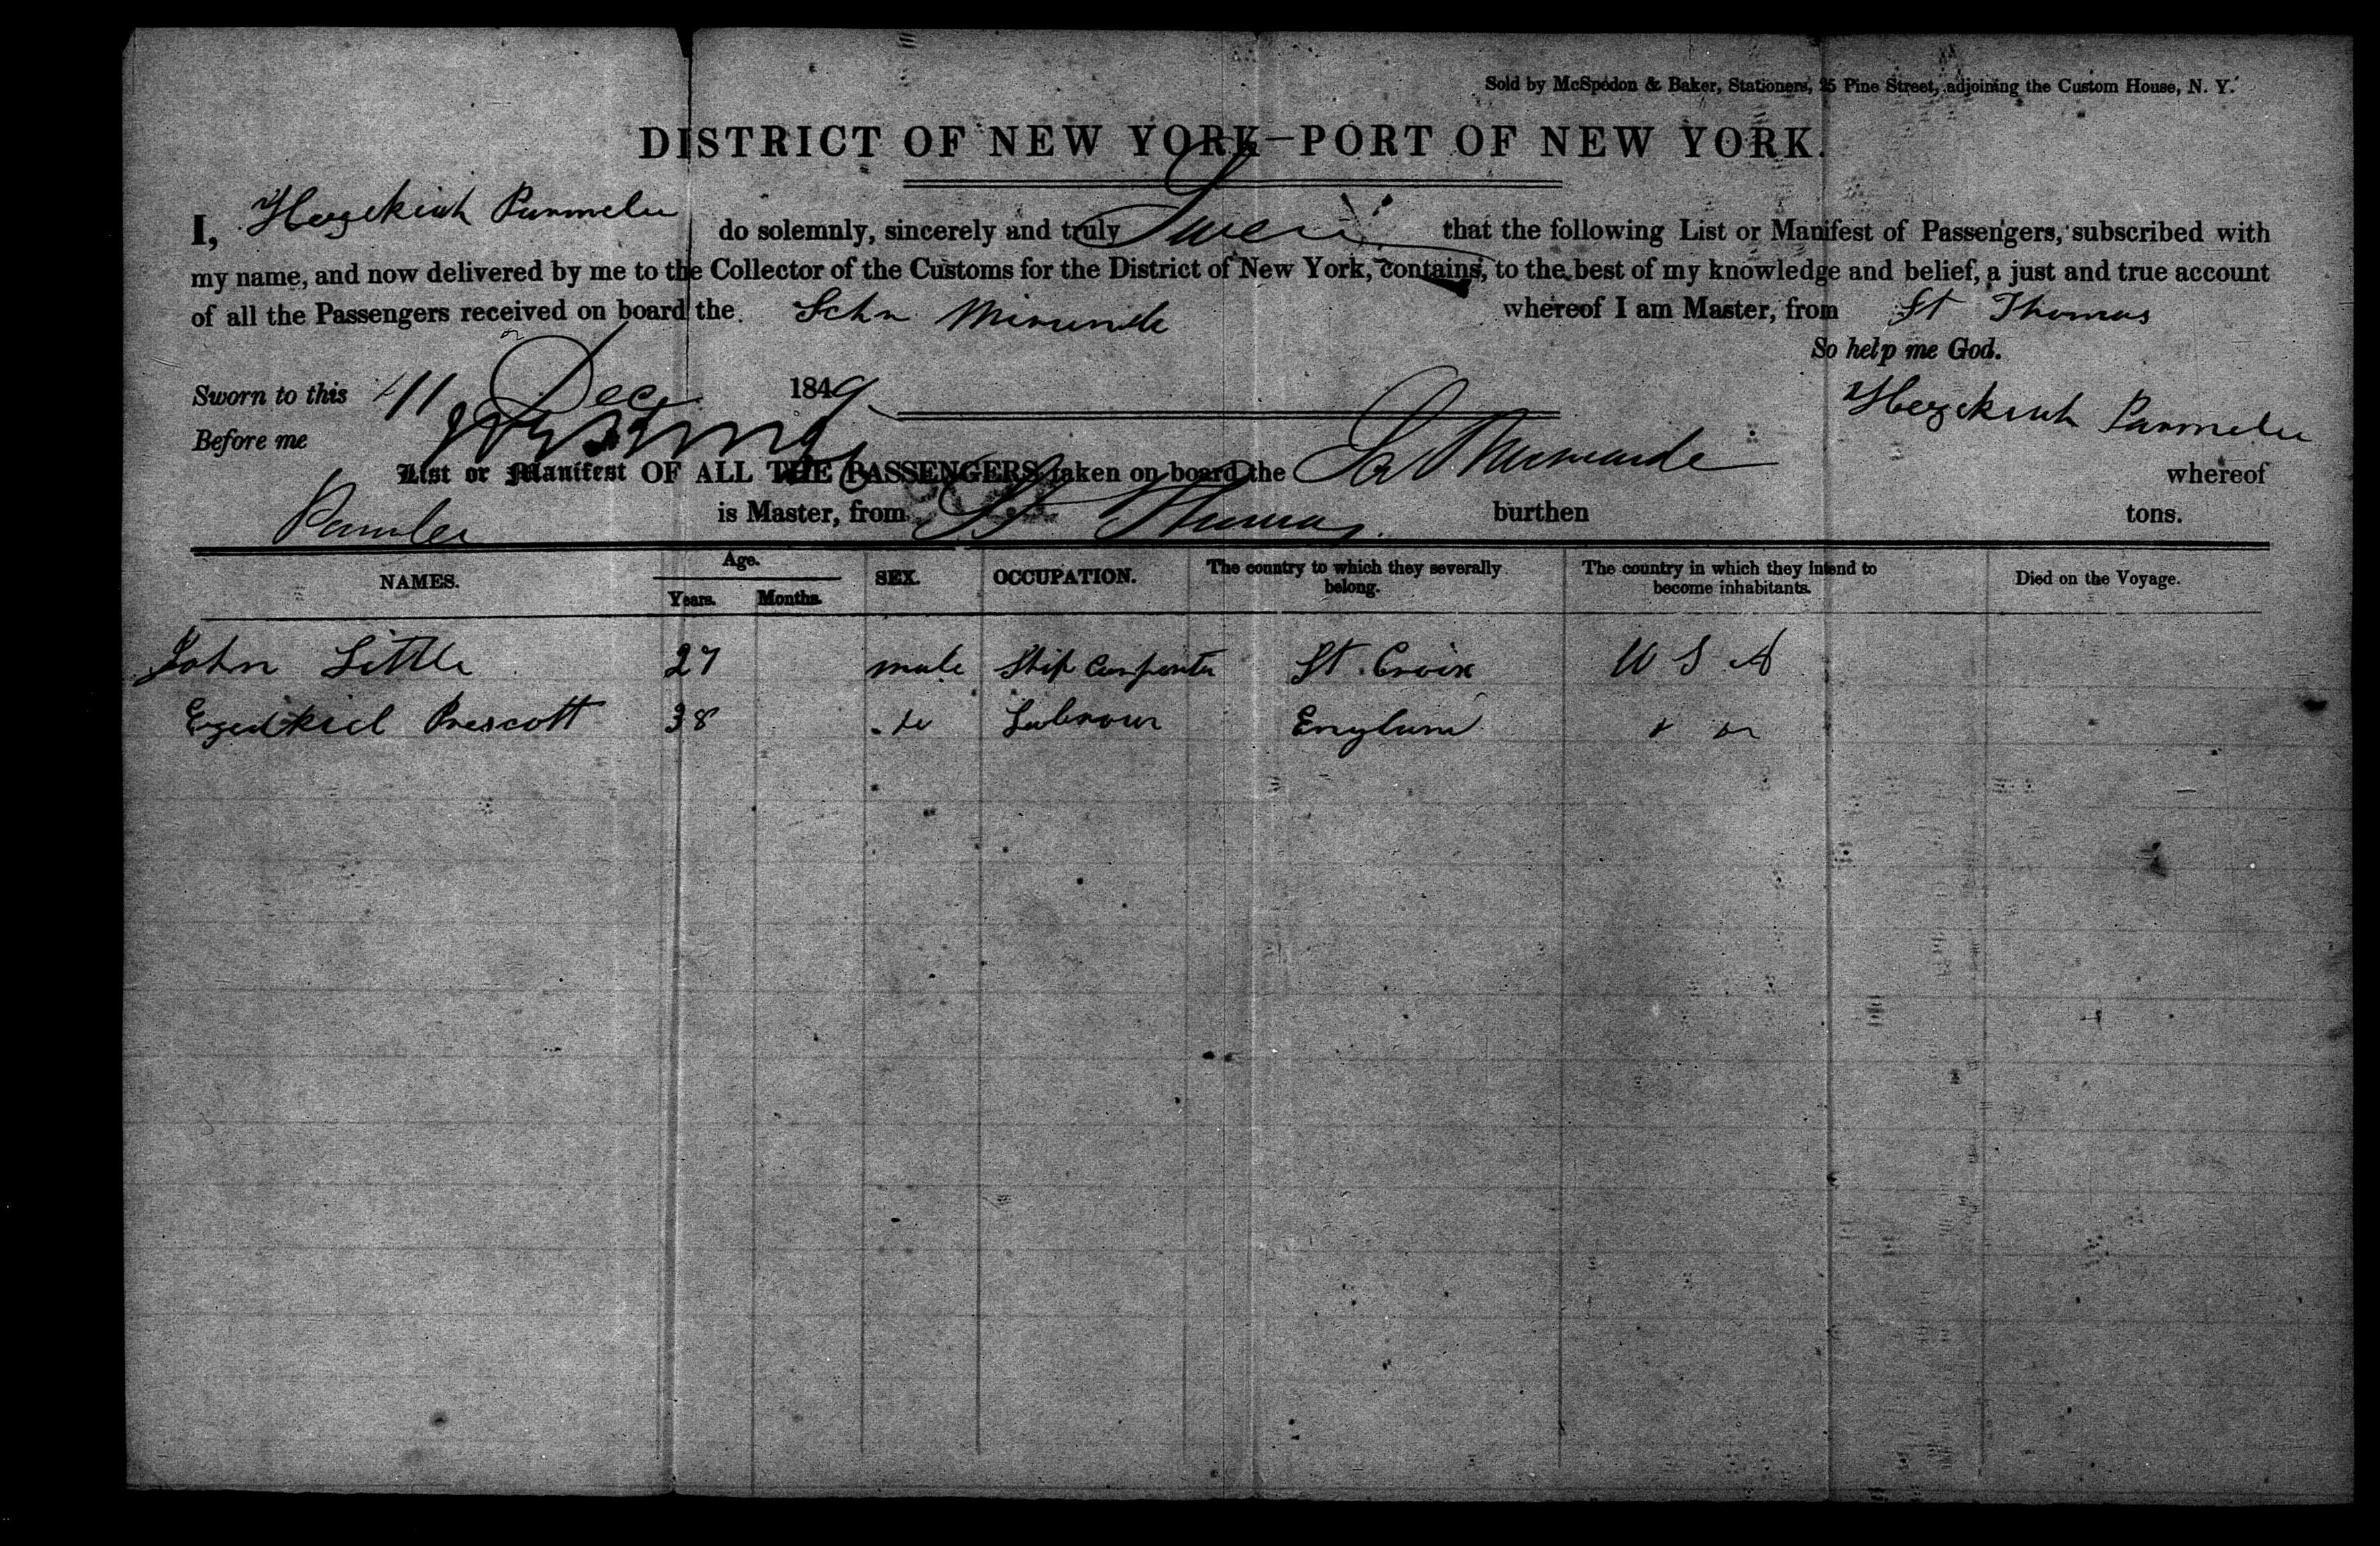 Sold by McSpedon & Baker, Stationers, 25 Pine Street, adjoining the Custom House, N. Y.
DISTRICT OF NEW YORK—PORT OF NEW YORK.
I, Hezekiah Parmelee do solemnly, sincerely and truly Swear that the following List or Manifest of Passengers, subscribed with
my name, and now delivered by me to the Collector of the Customs for the District of New York, contains, to the best of my knowledge and belief, a just and true account
of all the Passengers received on board the Schr whereof I am Master, from St Thomas
So help me God.
Sworn to this 11 Dec 1849
Hezekiah Parmelee
Before me
List or Manifest OF ALL THE PASSENGERS taken on board the whereof
is Master, from St Thomas burthen tons.
NAMES. Age. Years. Months. SEX. OCCUPATION. The country to which they severally belong. The country in which they intend to become inhabitants. Died on the Voyage.
John Little 27 male Ship Carpenter St. Croix U S A
Ezedkiel Prescott 38 do Labrour England